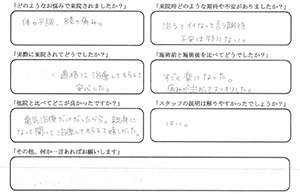 「どのようなお悩みで来院されましたか？」
体の不調、膝の痛み。
「来院時どのような期待や不安がありましたか？」
治るとイイなって言う期待
不安は特にない。
「実際に来院されてどうでしたか？」
適格に治療してもらえて
安心した。
「施術前と施術後を比べてどうでしたか？」
すごく楽になった。
痛みが
スッキリした。
「他院と比べてどこが良かったですか？」
電気治療だけだったから。親身に
なって聞いて治療してもらえて嬉しかった。
「スタッフの説明は解りやすかったでしょうか？」
はい。
「その他、何か一言あればお願いします」